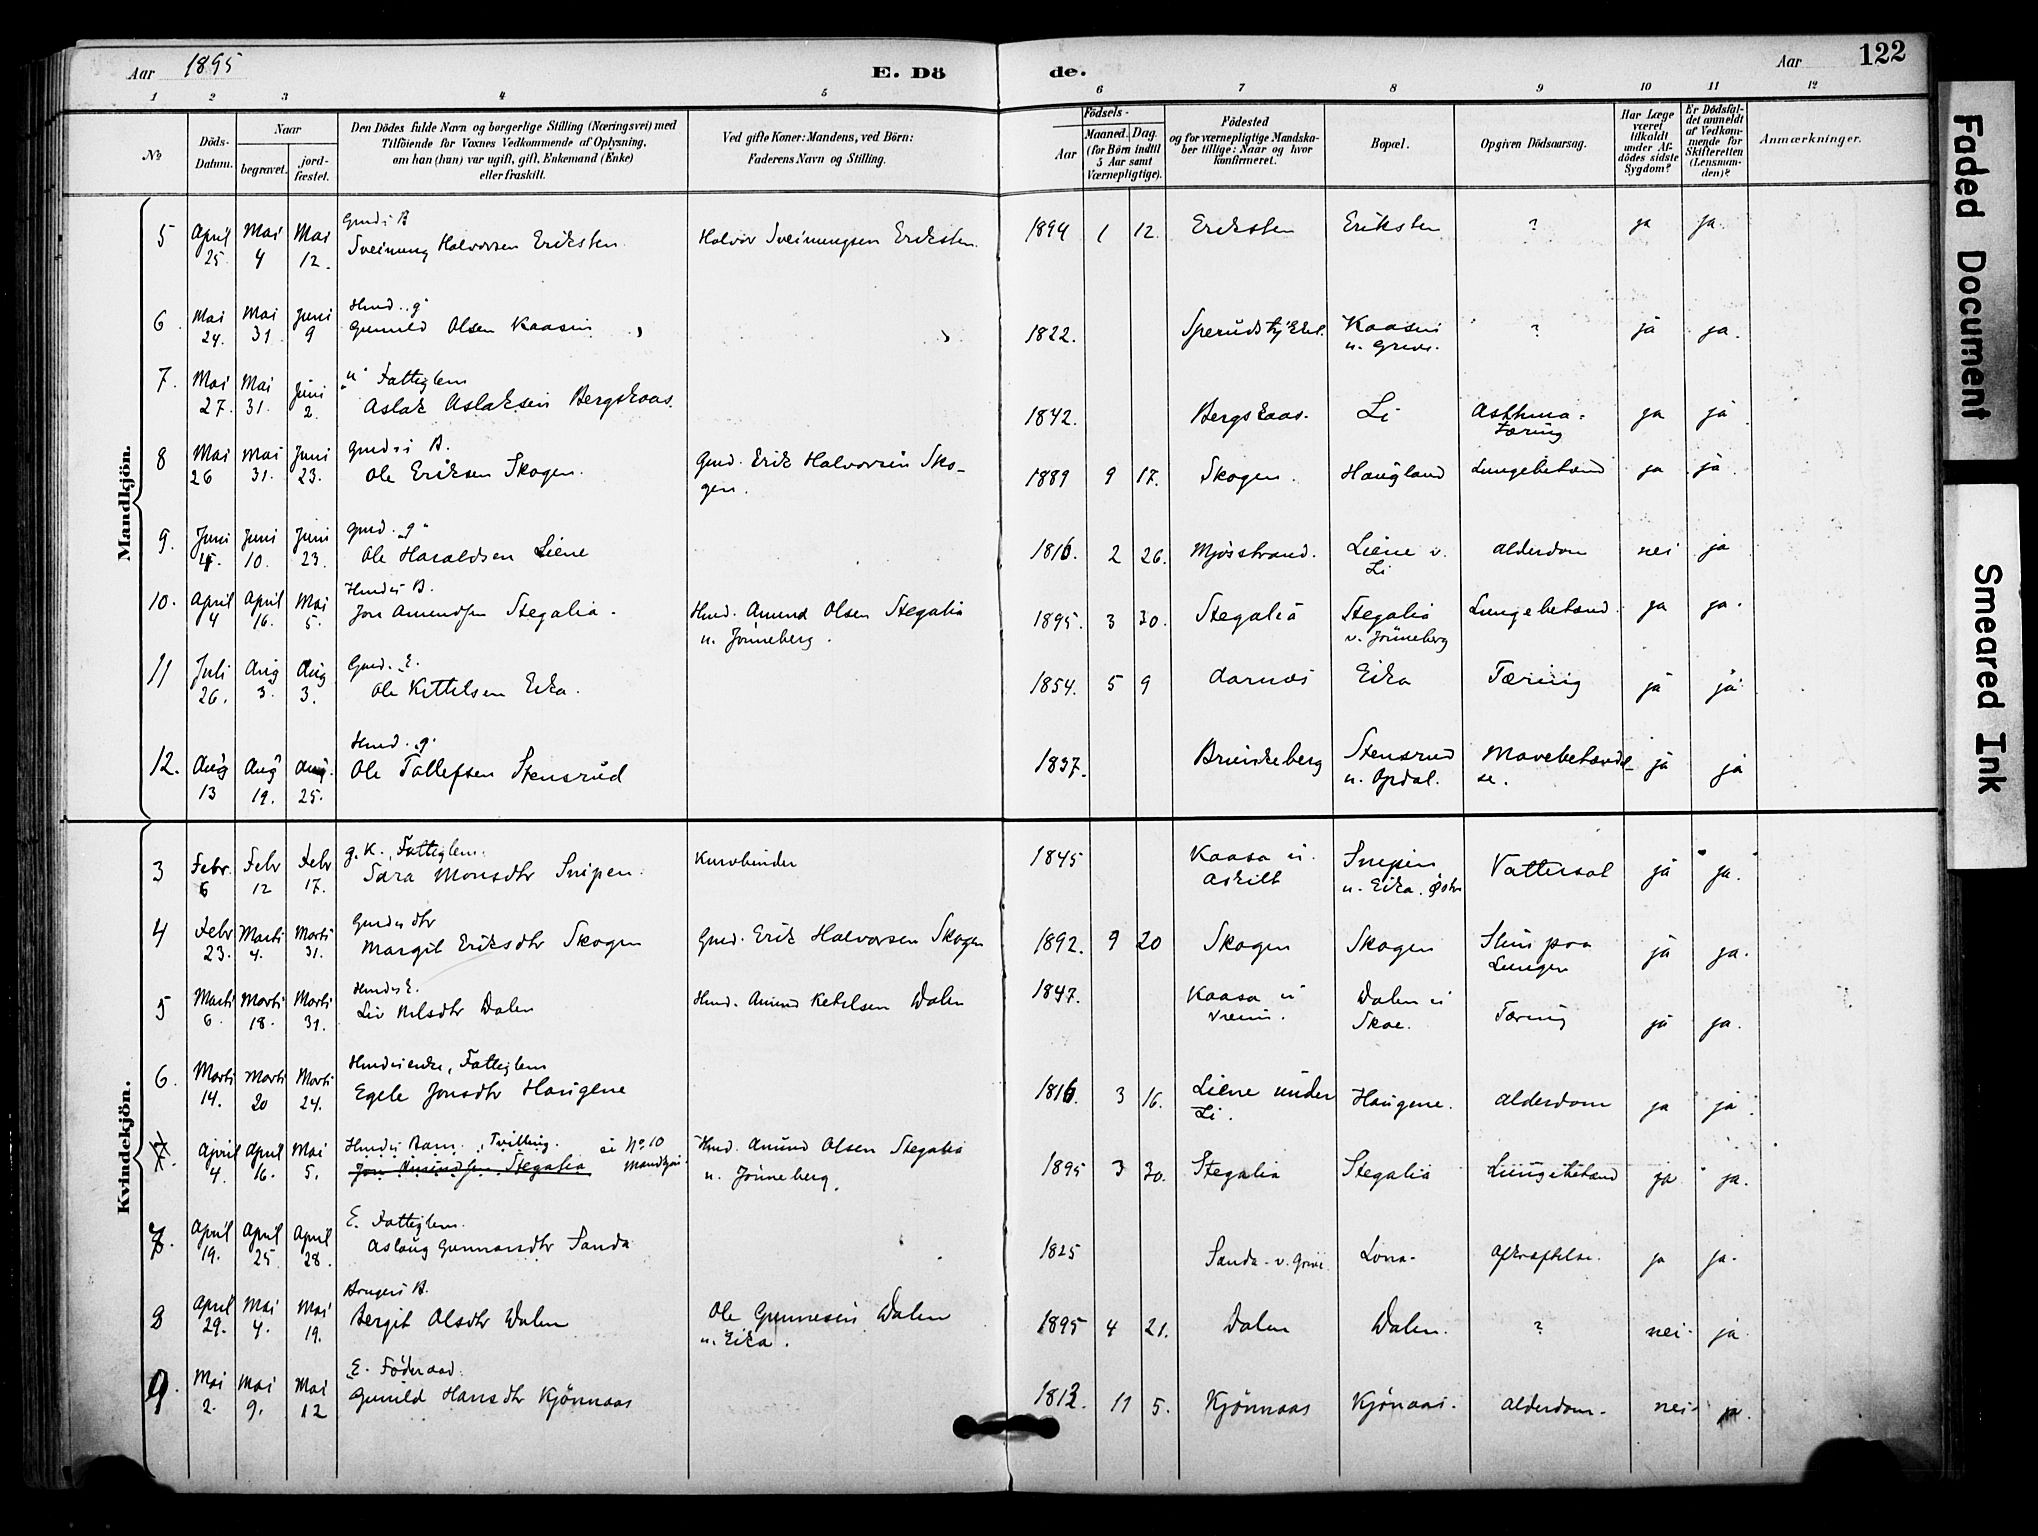 Aar 1895
E. Dö de.
Aar 122
1 2 3 4 5 6 7 8 9 10 11 12
No
Döds-Datum.
Naar
begravet. jord-fæstet.
Den Dödes fulde Navn og borgerlige Stilling (Næringsvei) med
Tilföiende for Voxnes Vedkommende af Oplysning,
om han (hun) var ugift, gift, Enkemand (Enke)
eller fraskilt.
Ved gifte Koner: Mandens, ved Börn:
Faderens Navn og Stilling.
Födsels-
Aar
Maaned. Dag.
(for Börn indtil
5 Aar samt
Værnepligtige).
Födested
og for værnepligtige Mandska-
ber tillige: Naar og hvor
konfirmeret.
Bopæl.
Opgiven Dödsaarsag.
Har Læge
været
tilkaldt
under Af-
dödes sidste
Sygdom?
Er Dödsfal-
det anmeldt
af Vedkom-
mende for
Skifteretten
(Lensman-
den)?
Anmærkninger.
Mandkjön.
Gmds B
5 April 25. Mai 4 Mai 12. Sveinung Halvorsen Eriksten Halvor Sveinungsen Eriksten 1894 1 12. Eriksten Eriksten ? ja ja.
Hmd. g.
6 Mai 24. Mai 31 Juni 9 Gunuld Olsen Kaasin 1822. Kaasin ? ja ja.
"u" Fattiglem
7. Mai 27. Mai 31. Juni 2. Aslak Aslaksen Bergskaas. 1842. Bergskaas. Li Asthma-
Tæring ja ja
Gmds B.
8 Mai 26 Mai 31. Juni 23. Ole Eriksen Skogen. Gmd. Erik Halvorsen Sko-
gen. 1889 9 17. Skogen. Haugland Lungebetænd ja ja
Gmd. g.
9. Juni Juni 10. Juni 23. Ole Haraldsen Liene 1816. 2 26. Mjösstrand. Liene v.
Li Alderdom nei ja
Hmds B.
10. April 4 April 16. Mai 5. Jon Amundsen Stegalia. Hmd. Amund Olsen Stegalia
u. Jönneberg. 1895. 3 30. Stegalia Stegalia
v. Jönneberg Lungebetænd. ja ja.
Gmd. E.
11 Juli 26. Aug 3. Aug 3. Ole Kittelsen Eika. 1854. 5 9 Aarnes Eika Tæring ja ja
Hmd. g.
12. Aug 13 Aug 19. Aug. 25. Ole Tallefsen Stensrud 1837. Brunkeberg Stensrud
u. Opdal. Mavebetændel-
se. ja ja
Kvindekjön.
g. K., Fattiglem.
3 Febr. 6 Febr 12 Febr 17. Sara Monsdtr Snipen. Kurvbinder 1845 Kaasa u.
Askilt Snipen
u. Eika. Östre Vattersot ja ja.
Gmds dtr
4 Febr 23. Marti 4. Marti 31. Margit Eriksdtr Skogen Gmd. Erik Halvorsen Skogen 1892. 9 20 Skogen Skogen Slim paa
Lungen ja ja.
Hmds E.
5 Marti 6. Marti 18. Marti 31. Liv Nilsdtr Dalen Hmd. Amund Ketilsen Dalen 1847. Kaasa u Dalen u
Skoe. Tæring ja ja.
Hmds enke, Fattiglem
6. Marti 14. Marti 20 Marti 24. Egele Jonsdtr Haugene 1816. 3 16. Liene under
Li. Haugene. Alderdom ja ja
Hmds Barn., Tvilling. No 10
7. April 4. April 16. Mai 5. Jon Amundsen Stegalia Mandkjön Hmd. Amund Olsen Stegalia
u. Jönneberg. 1895 3 30. Stegalia Stegalia Lungebetænd ja ja.
E. Fattiglem.
7. April 19. April 25 April 28. Aslaug Gunnarsdtr Sanda 1825 Sanda Afkræftelse. ja ja.
Brugers B.
8 April 29. Mai 4. Mai 19. Bergit Olsdtr Dalen Ole Gunnesen Dalen
u. Eika. 1895 4 21. Dalen Dalen. ? nei. ja
E. Föderaad.
9. Mai 2. Mai 9. Mai 12 Gunild Hansdtr Kjönnaas 1813. 11 5. Kjönnaas Kjönaas. Alderdom. nei ja.
Faded Document
Smeared Ink